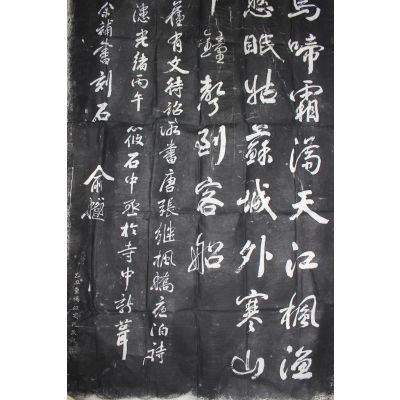 烏啼霜滿天江楓漁
愁眠姑蘇城外寒山
半鐘聲到客船
舊有文待詔所書唐張繼楓橋夜泊詩
漶光緒丙午筱石中丞於寺中新葺
余補書刻石
俞樾